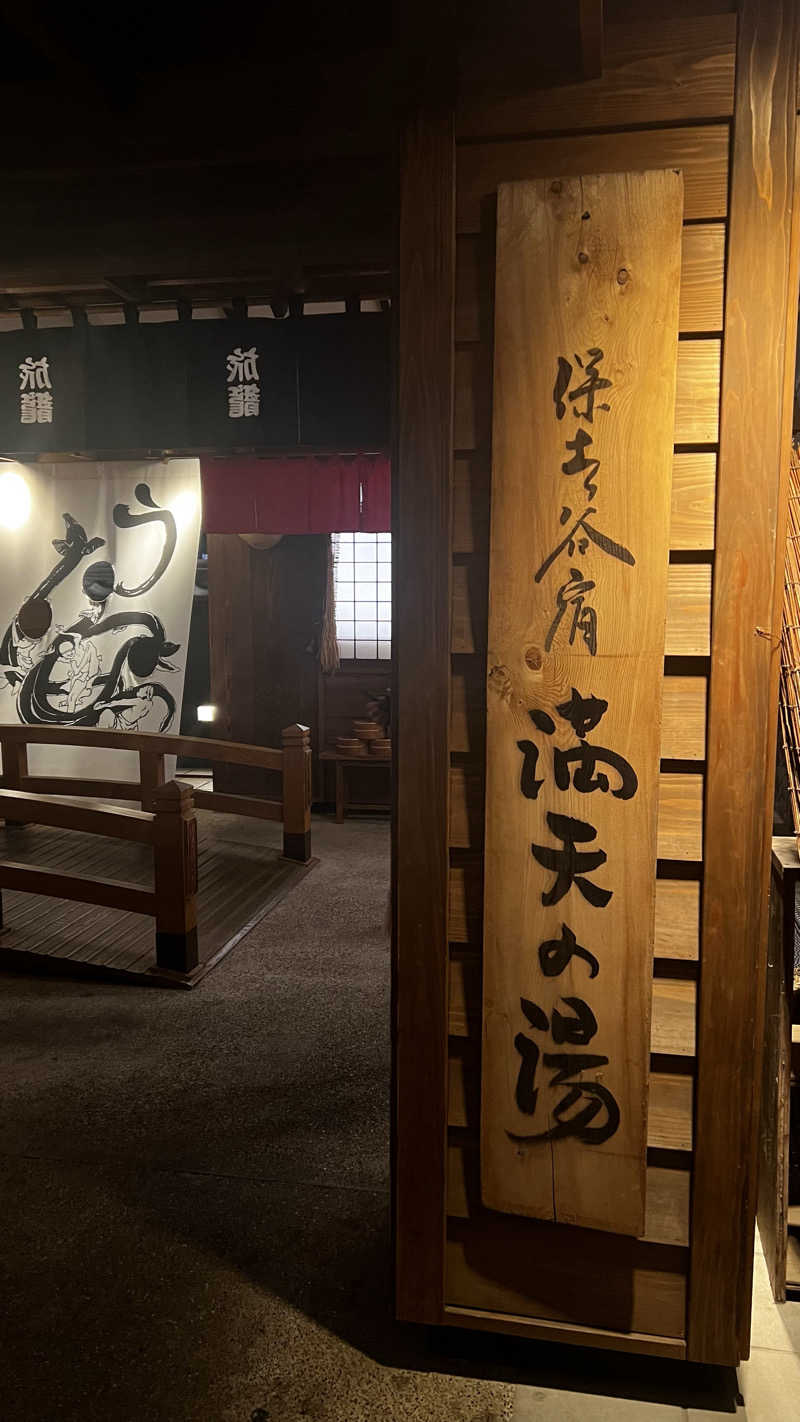 旅籠
旅籠
保土谷
満天の湯